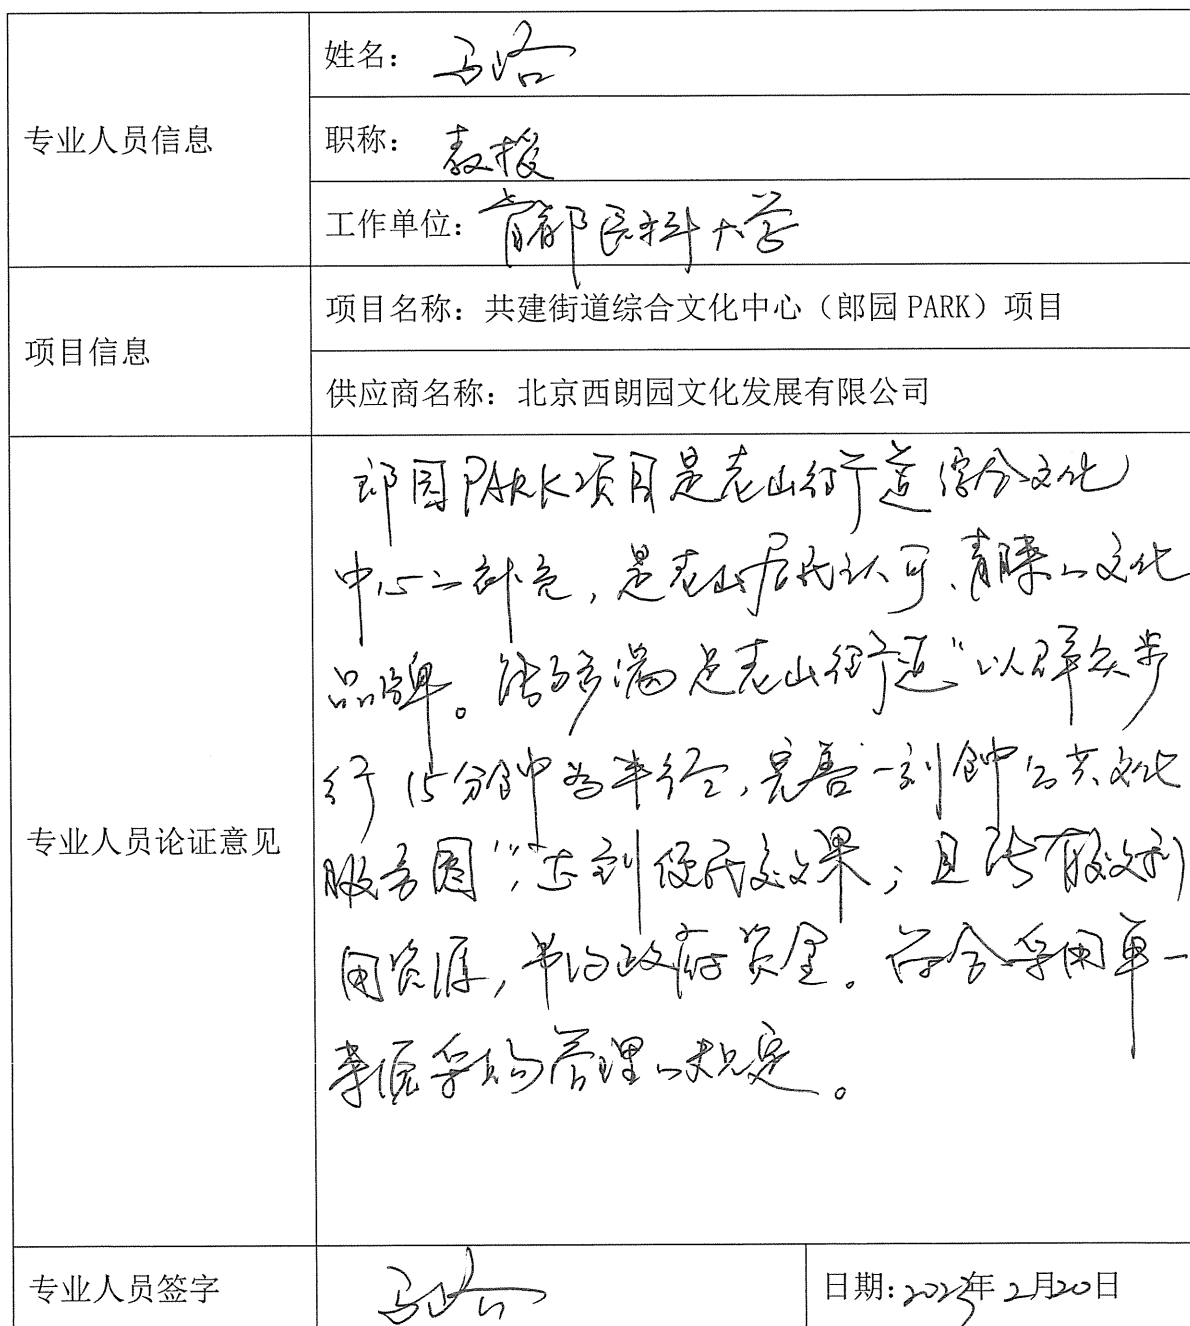 专业人员信息
姓名：马路
职称：教授
工作单位：首都医科大学
项目信息
项目名称：共建街道综合文化中心（郎园 PARK）项目
供应商名称：北京西朗园文化发展有限公司
专业人员论证意见
郎园PARK项目是老山街道综合文化
中心的补充，是老山居民认可、青睐的文化
品牌。能够满足老山街道“以群众步
行15分钟为半径，完善一刻钟公共文化
服务圈”，达到便民效果；且能有效利
用资源，节约政府资金。符合采用单一
来源采购管理的规定。
专业人员签字
马路
日期：2023年2月20日